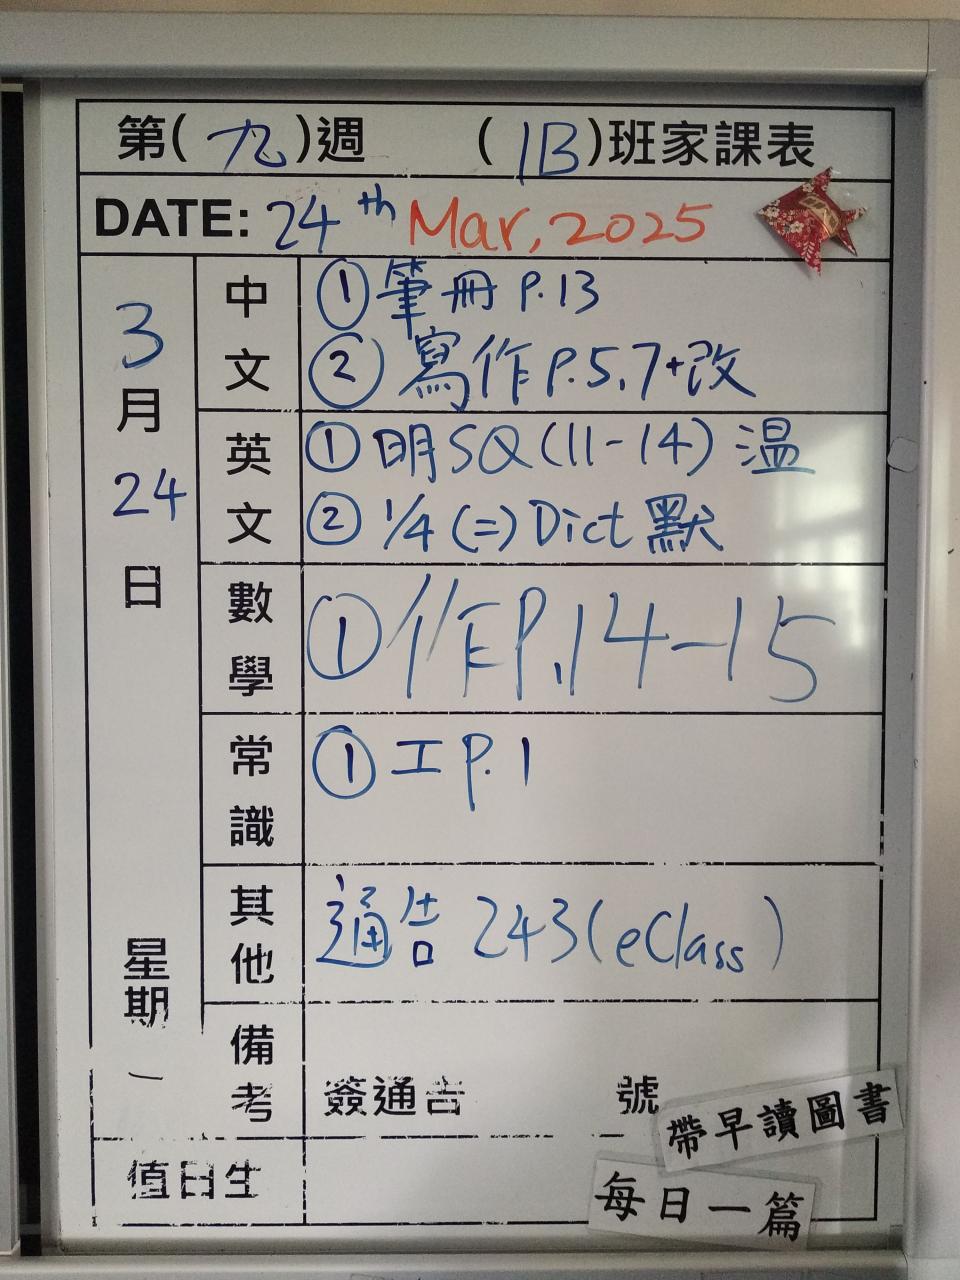 第(九)週 (1B)班家課表
DATE: 24th Mar, 2025
3月24日 星期一
中文
① 筆冊 P.13
② 寫作 P.5,7+改
英文
① 明SQ(11-14) 温
② 1/4 (二) Dict 默
數學
① 作P.14-15
常識
① 工 P.1
其他
通告 243(eClass)
備考
簽通告 號
帶早讀圖書
值日生
每日一篇